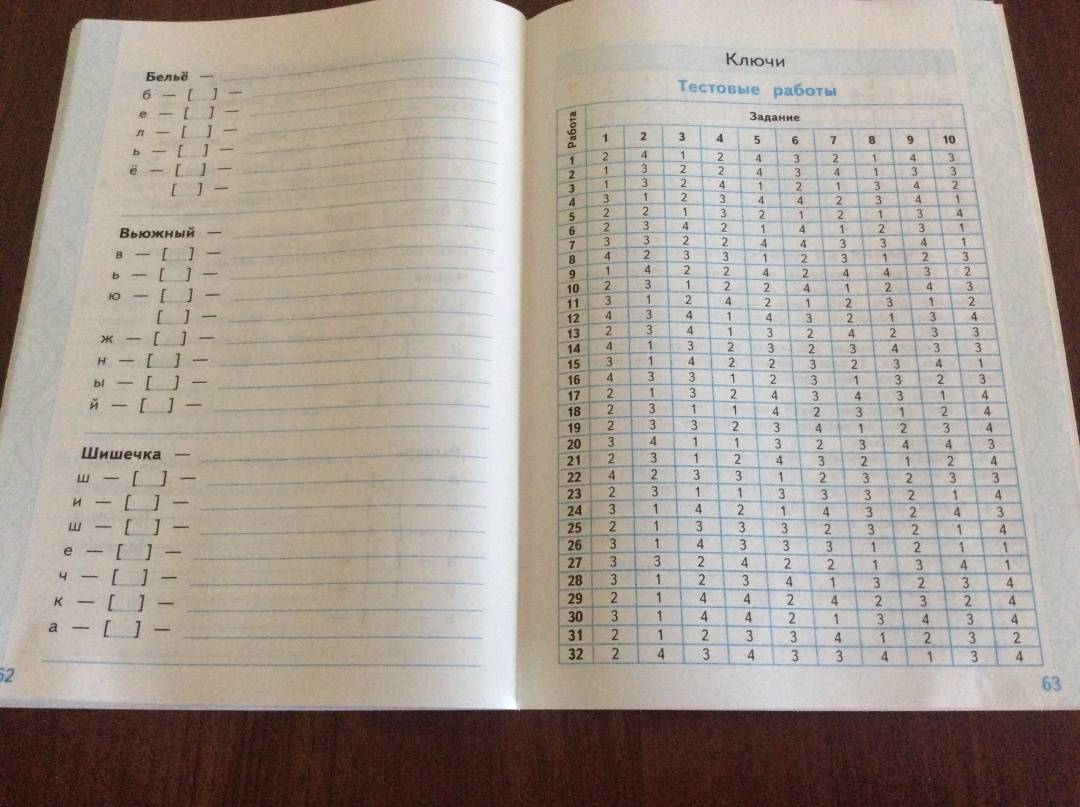 Бельё —
б — [ ] —
е — [ ] —
л — [ ] —
ь — [ ] —
ё — [ ] —
[ ] —
Вьюжный —
в — [ ] —
ь — [ ] —
ю — [ ] —
[ ] —
ж — [ ] —
н — [ ] —
ы — [ ] —
й — [ ] —
Шишечка —
ш — [ ] —
и — [ ] —
ш — [ ] —
е — [ ] —
ч — [ ] —
к — [ ] —
а — [ ] —
62
Ключи
Тестовые работы
Работа Задание
1 2 3 4 5 6 7 8 9 10
1 2 4 1 2 4 3 2 1 4 3
2 1 3 2 2 4 3 4 1 3 3
3 1 3 2 4 1 2 1 3 4 2
4 3 1 2 3 4 4 2 3 4 1
5 2 2 1 3 2 1 2 1 3 4
6 2 3 4 2 1 4 1 2 3 1
7 3 3 2 2 4 4 3 3 4 1
8 4 2 3 3 1 2 3 1 2 3
9 1 4 2 2 4 2 4 4 3 2
10 2 3 1 2 2 4 1 2 4 3
11 3 1 2 4 2 1 2 3 1 2
12 4 3 4 1 4 3 2 1 3 4
13 2 3 4 1 3 2 4 2 3 3
14 4 1 3 2 3 2 3 4 3 3
15 3 1 4 2 2 3 2 3 4 1
16 4 3 3 1 2 3 1 3 2 3
17 2 1 3 2 4 3 4 3 1 4
18 2 3 1 1 4 2 3 1 2 4
19 2 3 3 2 3 4 1 2 3 4
20 3 4 1 1 3 2 3 4 4 3
21 2 3 1 2 4 3 2 1 2 4
22 4 2 3 3 1 2 3 2 3 3
23 2 3 1 1 3 3 3 2 1 4
24 3 1 4 2 1 4 3 2 4 3
25 2 1 3 3 3 2 3 2 1 4
26 3 1 4 3 3 3 1 2 1 1
27 3 3 2 4 2 2 1 3 4 1
28 3 1 2 3 4 1 3 2 3 4
29 2 1 4 4 2 4 2 3 2 4
30 3 1 4 4 2 1 3 4 3 4
31 2 1 2 3 3 4 1 2 3 2
32 2 4 3 4 3 3 4 1 3 4
63